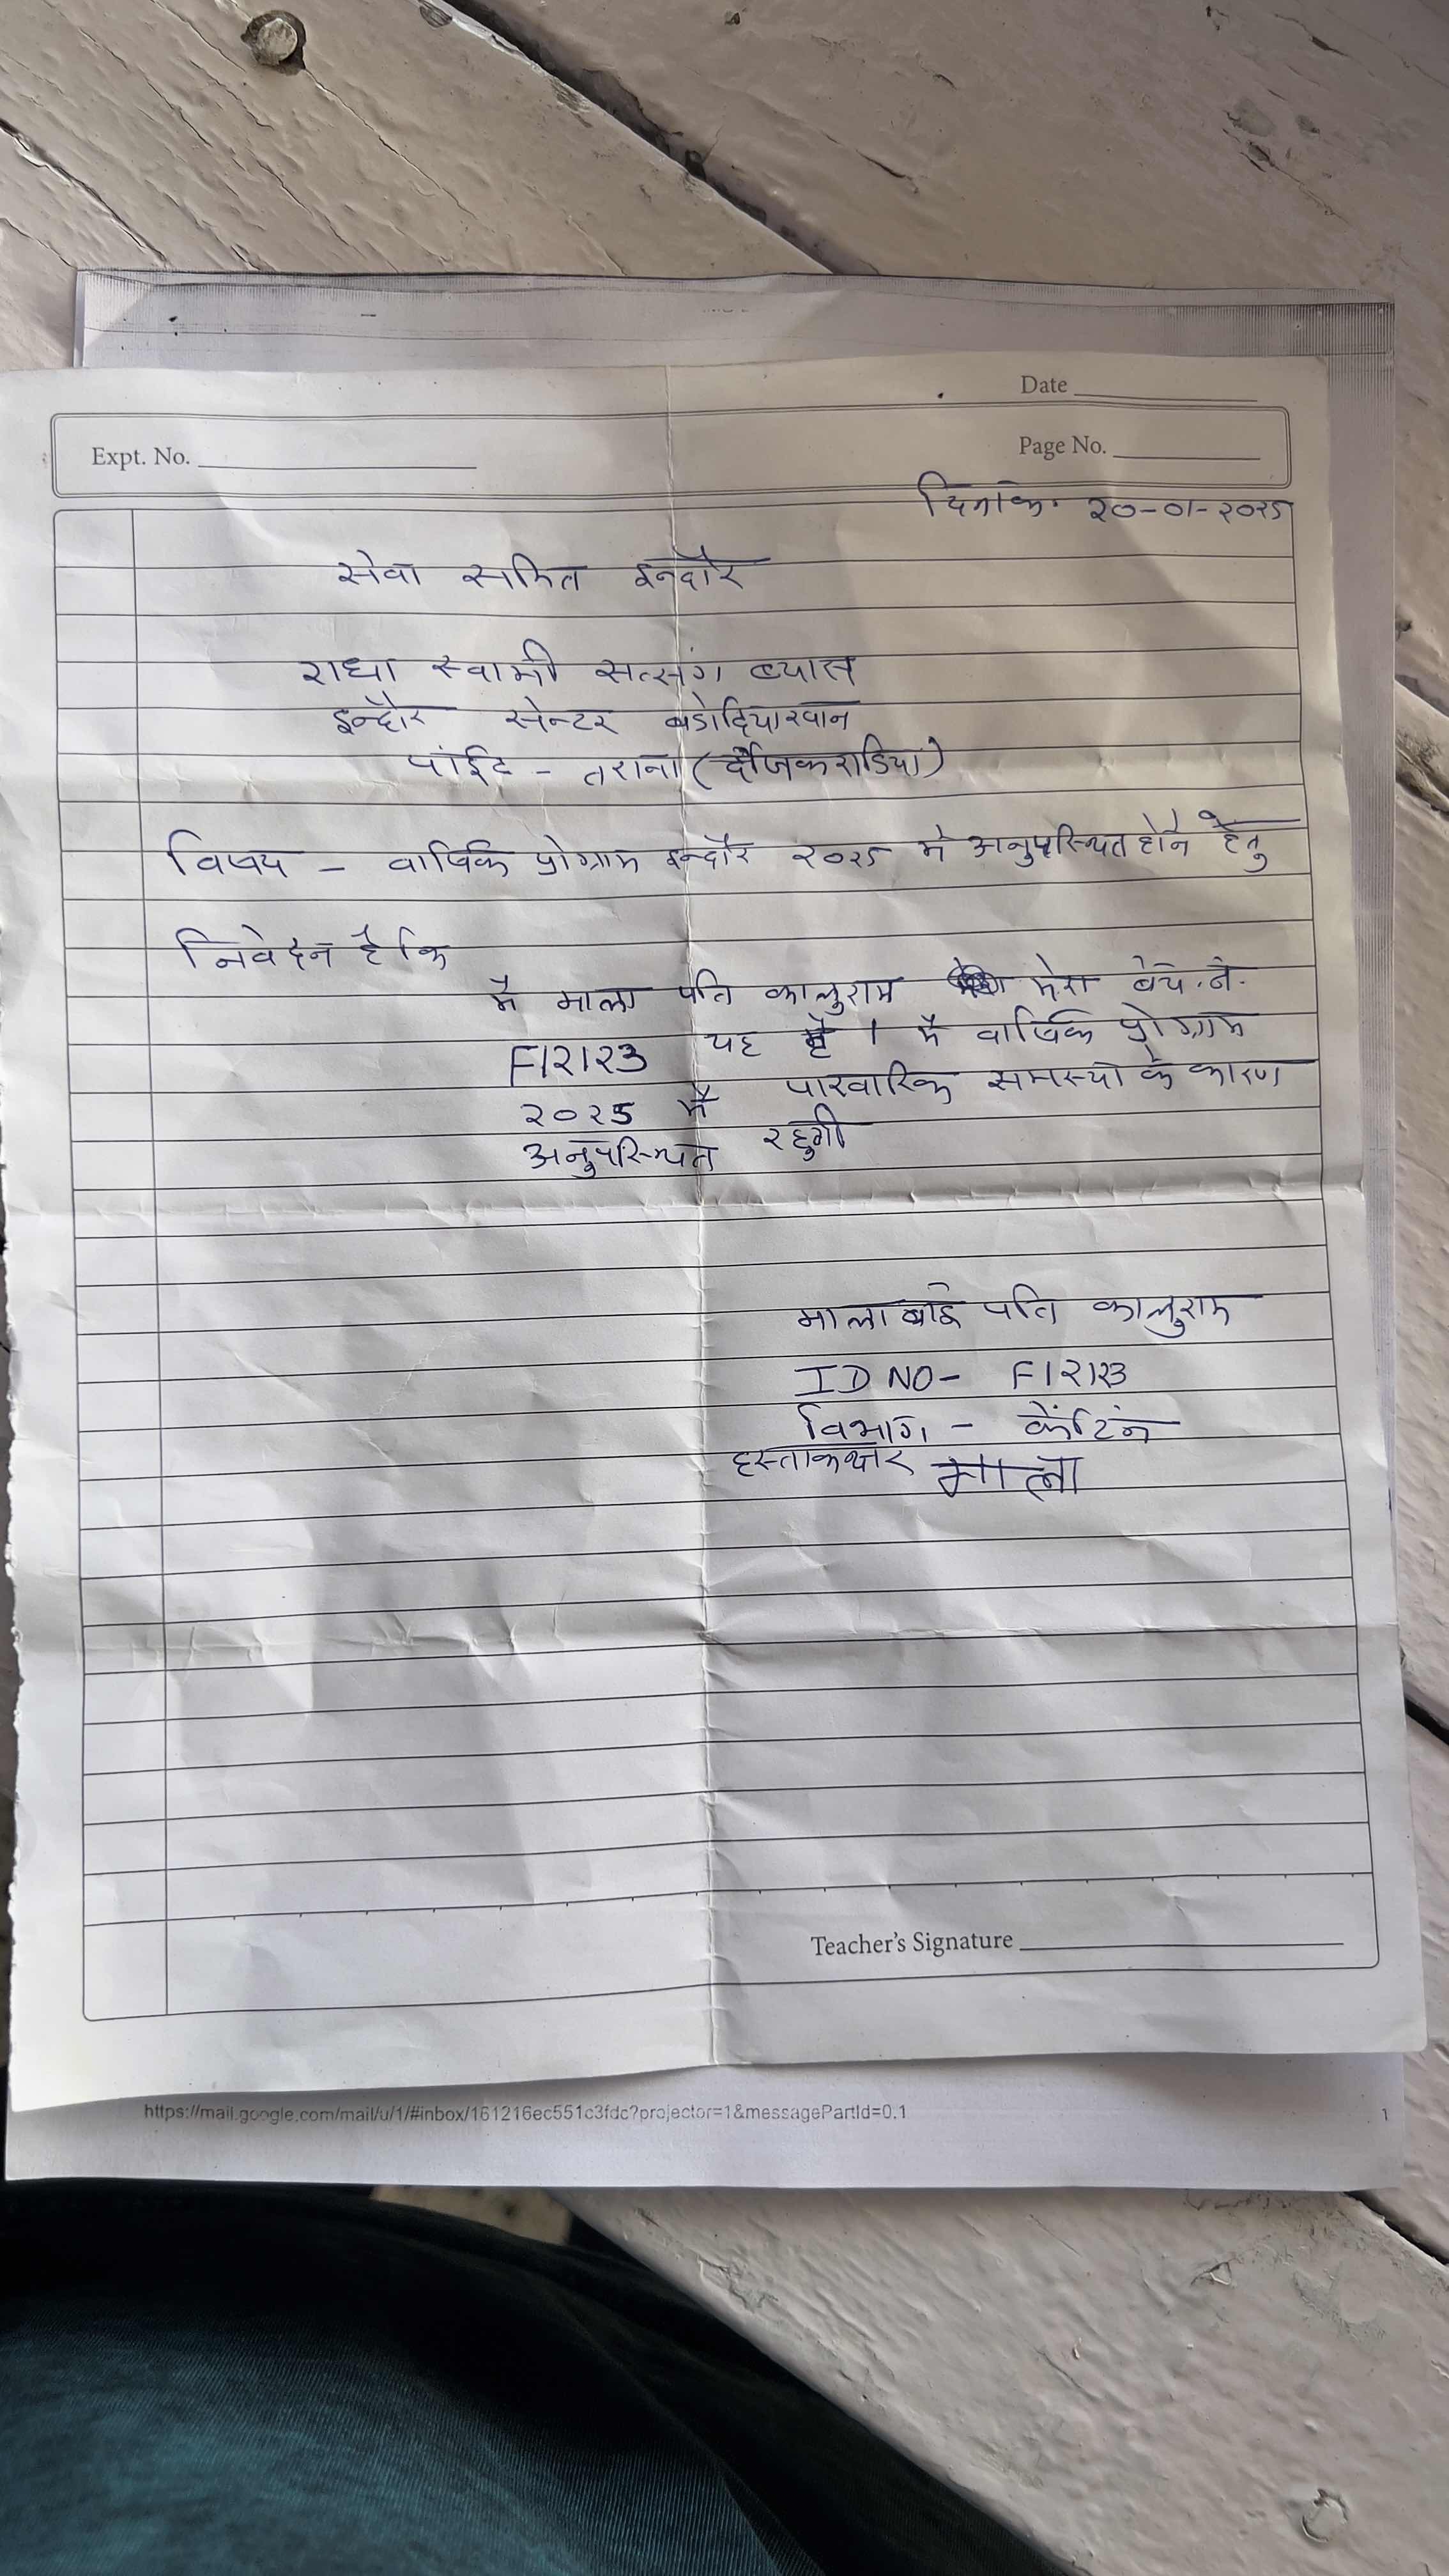 Date
Expt. No.
Page No.
दिनांक. २०-०१-२०२५
सेवा समित इन्दौर
राधा स्वामी सत्संग ब्यास
इन्दौर सेन्टर बडोदियाखान
पांईट - तराना (दौजकराडिया)
विषय - वार्षिक प्रोग्राम इन्दौर २०२५ मे अनुपस्थित होने हेतु
निवेदन है कि
मै माला पति कालुराम मेरा बेच.ने.
F१२१२३ यह है । मै वार्षिक प्रोग्राम
२०२५ मै पारवारिक समस्या के कारण
अनुपस्थित रहुगी
माला बाई पति कालुराम
ID NO- F१२१२३
विभाग - केंटिंन
हस्ताकक्षर माला
Teacher's Signature
https://mail.google.com/mail/u/1/#inbox/161216ec551c3fdc?projector=1&messagePartId=0.1
1